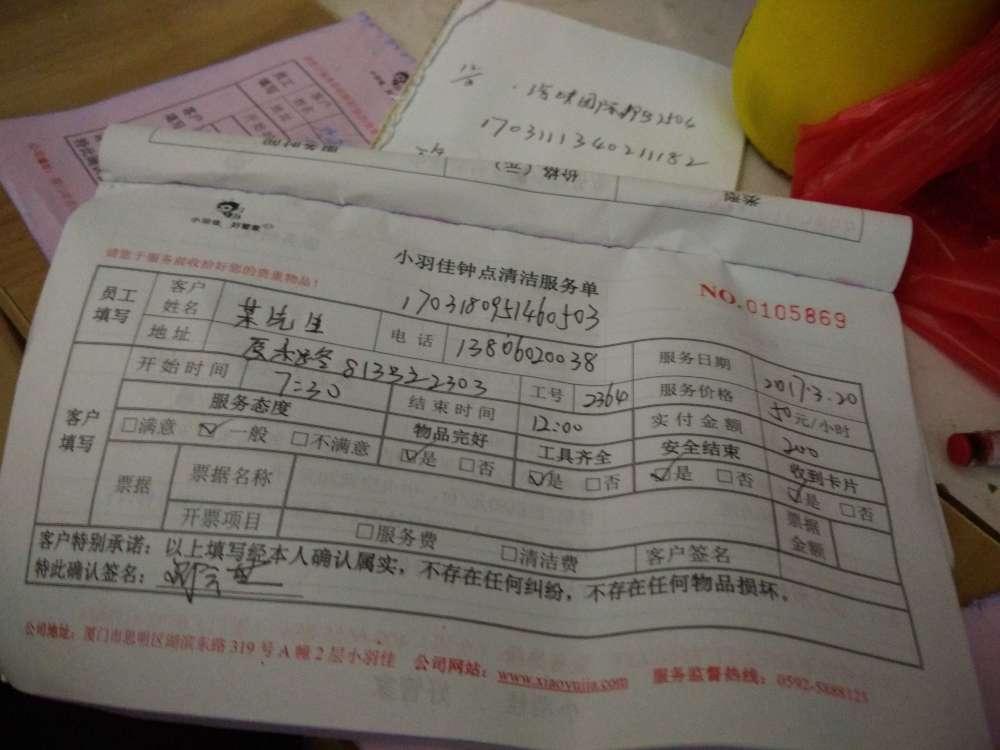 17031113402111182
价格(元)
类型
小羽佳 好管家
小羽佳钟点清洁服务单
请您于服务前收拾好您的贵重物品!
NO.0105869
1703180951460503
员工填写
客户姓名
某先生
电话
13806020038
服务日期
2017.3.20
地址
813号2303
工号
2364
服务价格
50元/小时
客户填写
开始时间
7:30
结束时间
12:00
实付金额
200
服务态度
物品完好
工具齐全
安全结束
收到卡片
□满意 ☑一般 □不满意
☑是 □否
☑是 □否
☑是 □否
☑是 □否
票据
票据名称
票据金额
开票项目
□服务费
□清洁费
客户签名
客户特别承诺:以上填写经本人确认属实,不存在任何纠纷,不存在任何物品损坏。
特此确认签名:
公司地址:厦门市思明区湖滨东路319号A幢2层小羽佳 公司网站:www.xiaoyujia.com 服务监督热线:0592-5888125